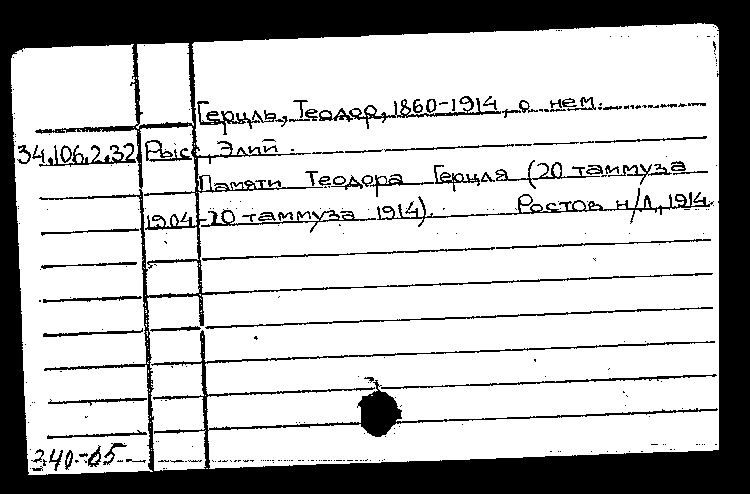 Герцль, Теодор, 1860-1914, о нем.
34.106.2.32 Рысс, Элий.
Памяти Теодора Герцля (20 таммуза
1904-20 таммуза 1914). Ростов н/Д, 1914.
340-65